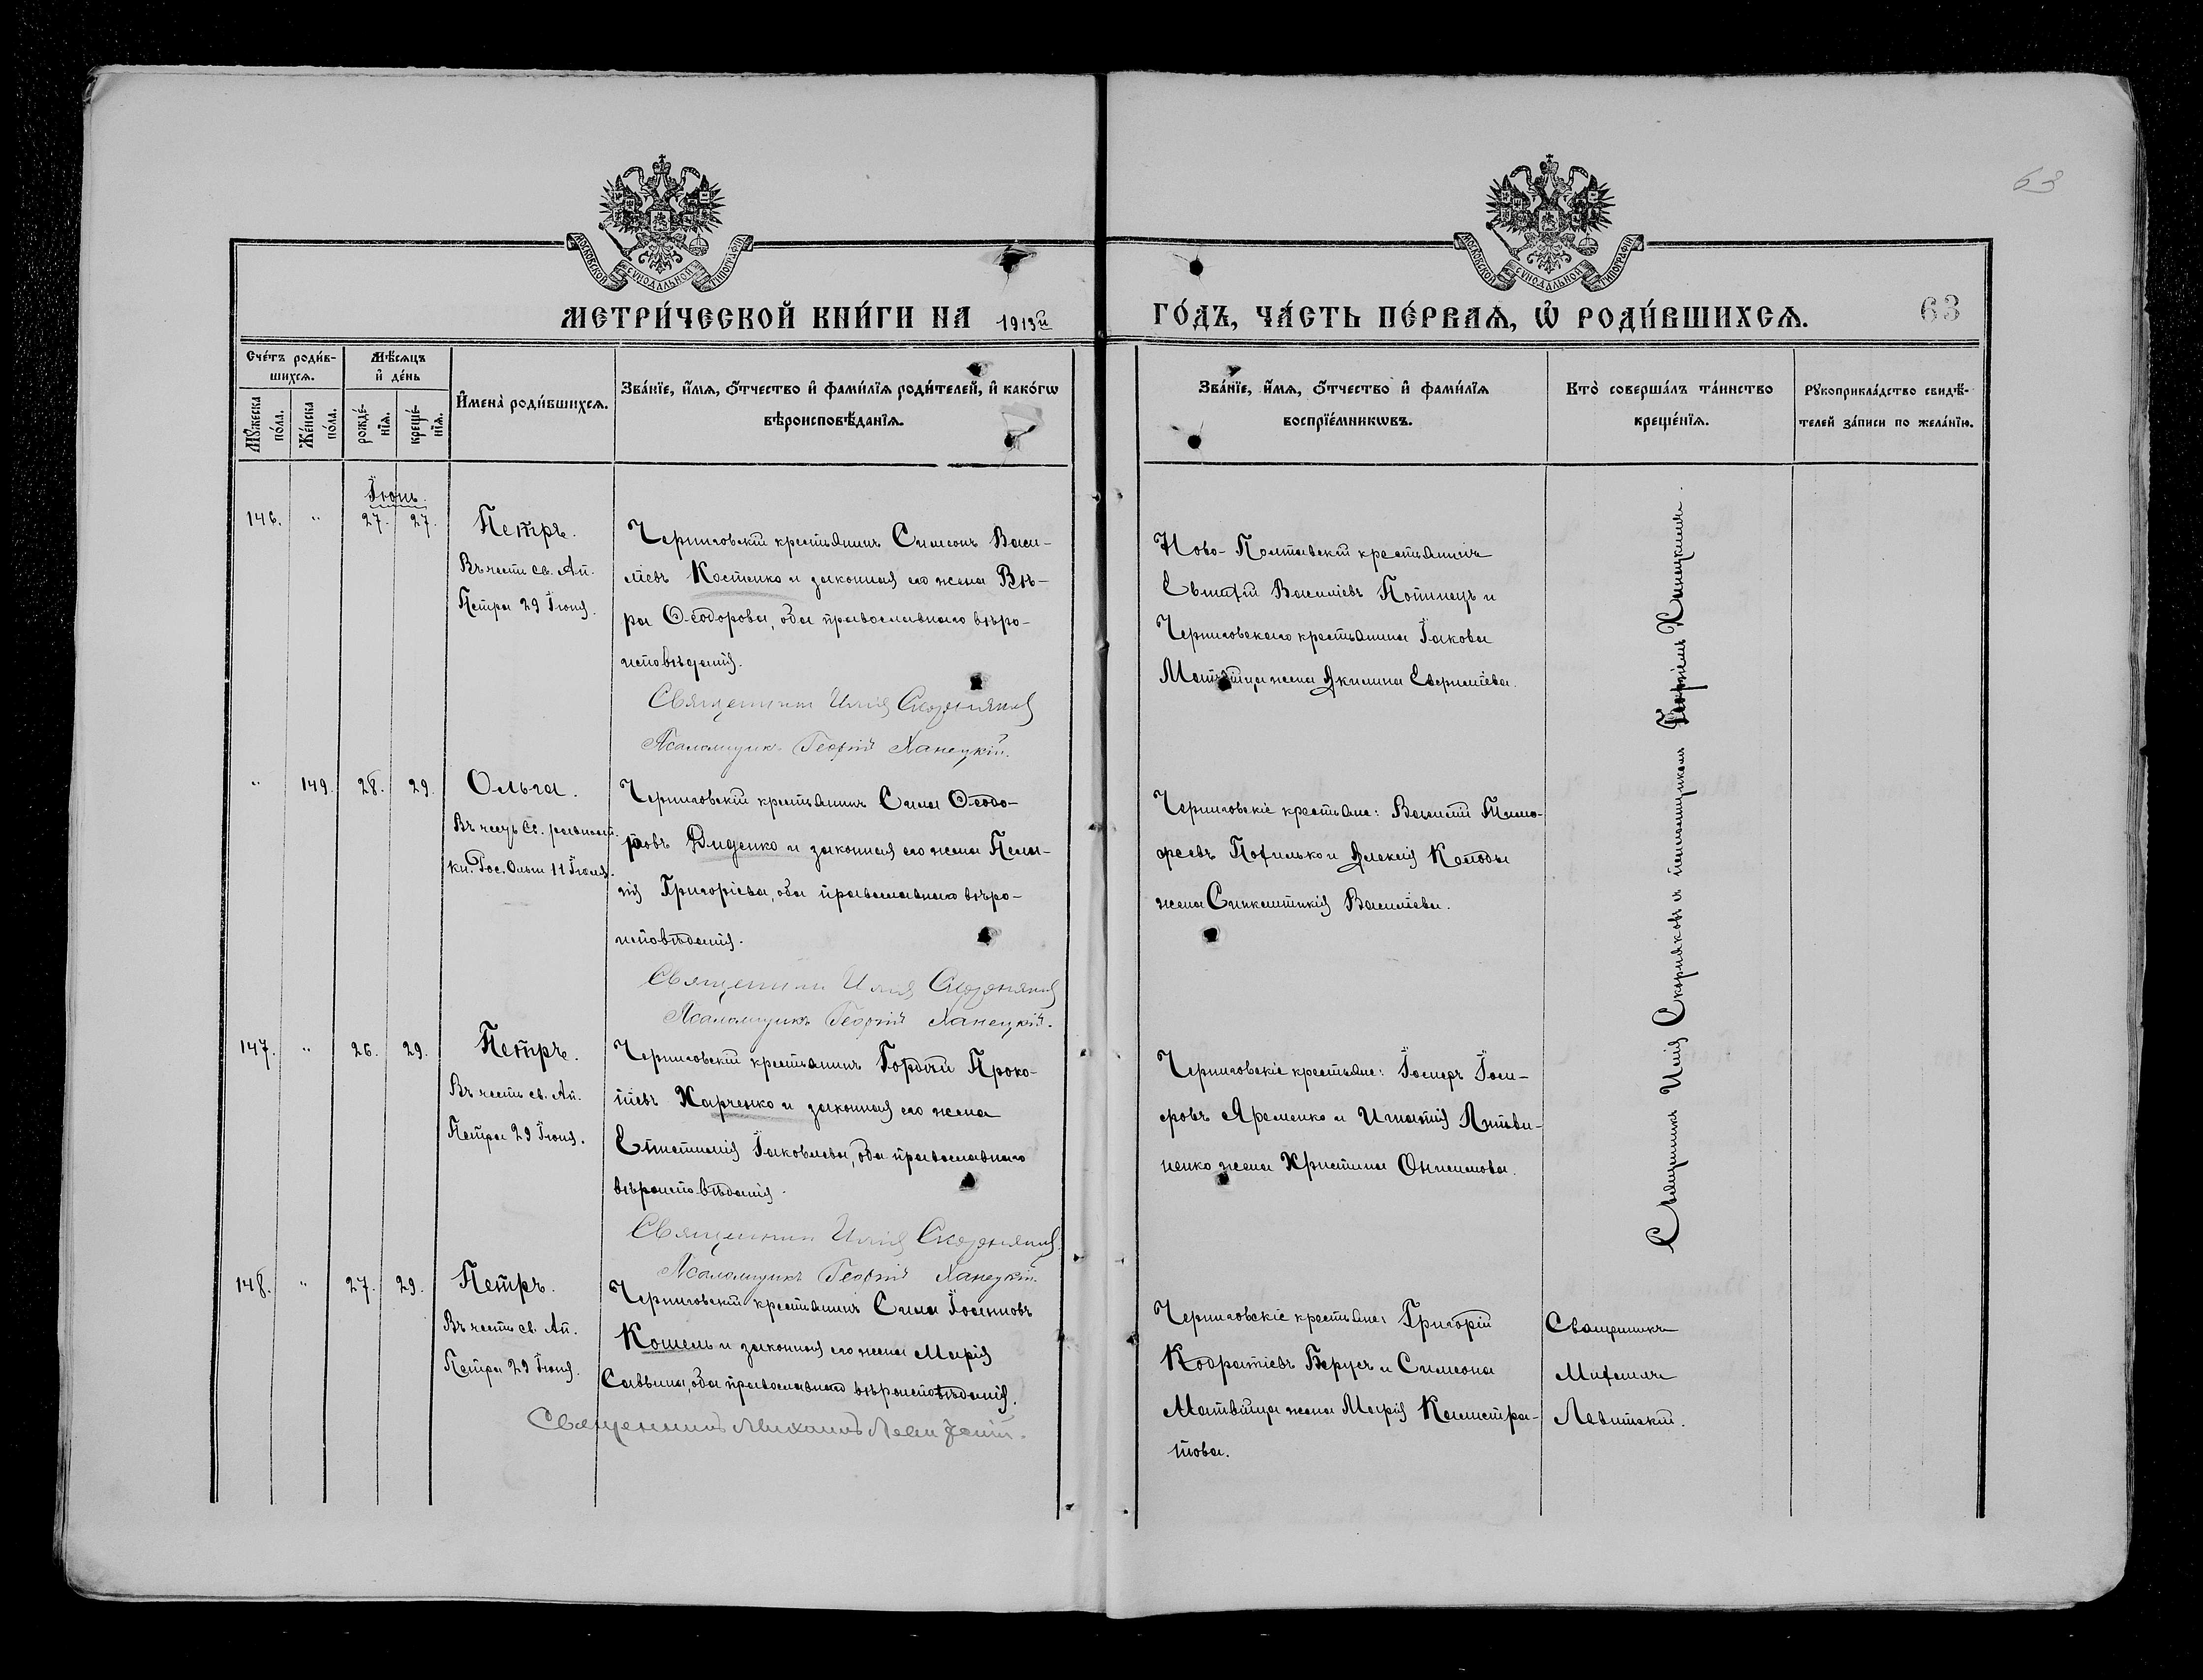 63
МОСКОВСКОЙ СУНОДАЛЬНОЙ ТИПОГРАФІИ
МОСКОВСКОЙ СУНОДАЛЬНОЙ ТИПОГРАФІИ
МЕТРИ́ЧЕСКОЙ КНИ́ГИ НА 1913й
ГО́ДЪ, ЧА́СТЬ ПЕ́РВАѦ, Ѡ҆ РОДИ́ВШИХСѦ.
63
Сче́тъ роди́в-
шихсѧ.
Мꙋ́жеска
по́ла.
Же́нска
по́ла.
Мѣ́сѧцъ
и҆ де́нь
рожде́-
нїѧ.
креще́-
нїѧ.
И҆мена̀ роди́вшихсѧ.
Зва́нїе, и҆́мѧ, ѻ҆́тчество и҆ фами́лїѧ роди́телей, и҆ како́гѡ
вѣроисповѣ́данїѧ.
Зва́нїе, и҆́мѧ, ѻ҆́тчество и҆ фами́лїѧ
воспрїе́мникѡвъ.
Кто̀ соверша́лъ та́инство
креще́нїѧ.
Рꙋкоприкла́дство свидѣ́-
телей за́писи по жела́нїю.
Іюнь.
146. " 27. 27.
Петръ.
Въ честь св. Ап.
Петра 29 Іюня.
Черниговскій крестьянинъ Симеонъ Васи-
ліевъ Костенко и законная его жена Вѣ-
ра Ѳеодорова, оба православнаго вѣро-
исповѣданія.
Священникъ Илія Скорняковъ
Псаломщикъ Георгій Ханецкій.
Ново-Полтавскій крестьянинъ
Евтихій Василіевъ Потинецъ и
Черниговскаго крестьянина Іакова
жена Акилина
" 149. 28. 29.
Ольга.
Въ честь св. равноап.
кн. Рос. Ольги 11 Іюля.
Черниговскій крестьянинъ Сила Ѳеодо-
ровъ Диденко и законная его жена Пела-
гія Григоріева, оба православнаго вѣро-
исповѣданія.
Священникъ Илія Скорняковъ
Псаломщикъ Георгій Ханецкій.
Черниговскіе крестьяне: Василій Тимо-
феевъ Похилько и Алексія Колоды
жена Синклитикія Василіева.
147. " 26. 29.
Петръ.
Въ честь св. Ап.
Петра 29 Іюня.
Черниговскій крестьянинъ Гордій Проко-
піевъ Харченко и законная его жена
Епистимія Іаковлева, оба православнаго
вѣроисповѣданія.
Священникъ Илія Скорняковъ
Псаломщикъ Георгій Ханецкій.
Черниговскіе крестьяне: Іосифъ Іоси-
фовъ Яременко и Игнатія Литви-
ненко жена Христина Онисимова.
Священникъ Илія Скорняковъ съ псаломщикомъ Георгіемъ Ханецкимъ.
148. " 27. 29.
Петръ.
Въ честь св. Ап.
Петра 29 Іюня.
Черниговскій крестьянинъ Сила Іосиповъ
Кошель и законная его жена Марія
Саввина, оба православнаго вѣроисповѣданія.
Священникъ Михаилъ Левитскій.
Черниговскіе крестьяне: Григорій
Кодратіевъ Берусъ и Симеона
Матвійца жена Марія Калистра-
това.
Священникъ
Михаилъ
Левитскій.